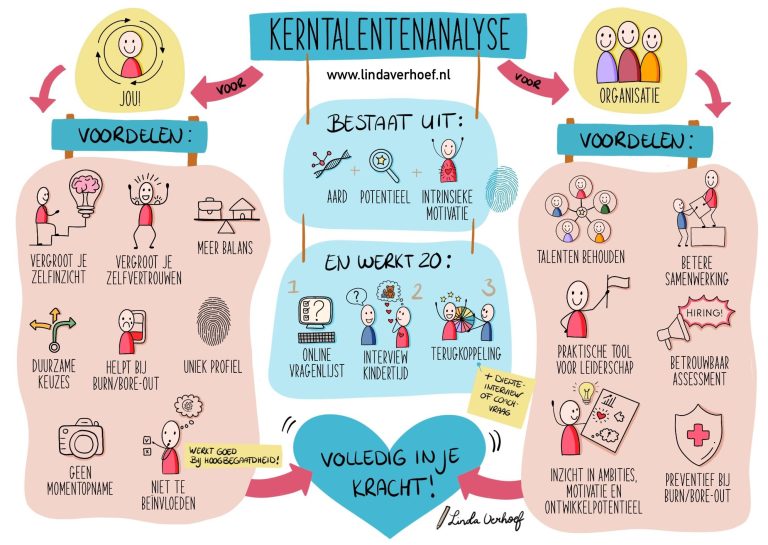 KERNTALENTENANALYSE
www.lindaverhoef.nl
JOU!
VOOR
VOOR
ORGANISATIE
VOORDELEN:
VERGROOT JE
ZELFINZICHT
VERGROOT JE
ZELFVERTROUWEN
MEER BALANS
DUURZAME
KEUZES
HELPT BIJ
BURN/BORE-OUT
UNIEK PROFIEL
GEEN
MOMENTOPNAME
NIET TE
BEÏNVLOEDEN
WERKT GOED
BIJ HOOGBEGAAFDHEID!
BESTAAT UIT:
AARD
+
POTENTIEEL
+
INTRINSIEKE
MOTIVATIE
EN WERKT ZO:
1
2
3
?
?
ONLINE
VRAGENLIJST
INTERVIEW
KINDERTIJD
TERUGKOPPELING
+ DIEPTE-
INTERVIEW
OF COACH-
VRAAG
VOLLEDIG IN JE
KRACHT!
Linda Verhoef
VOORDELEN:
TALENTEN BEHOUDEN
BETERE
SAMENWERKING
PRAKTISCHE TOOL
VOOR LEIDERSCHAP
HIRING!
BETROUWBAAR
ASSESSMENT
INZICHT IN AMBITIES,
MOTIVATIE EN
ONTWIKKELPOTENTIEEL
PREVENTIEF BIJ
BURN/BORE-OUT